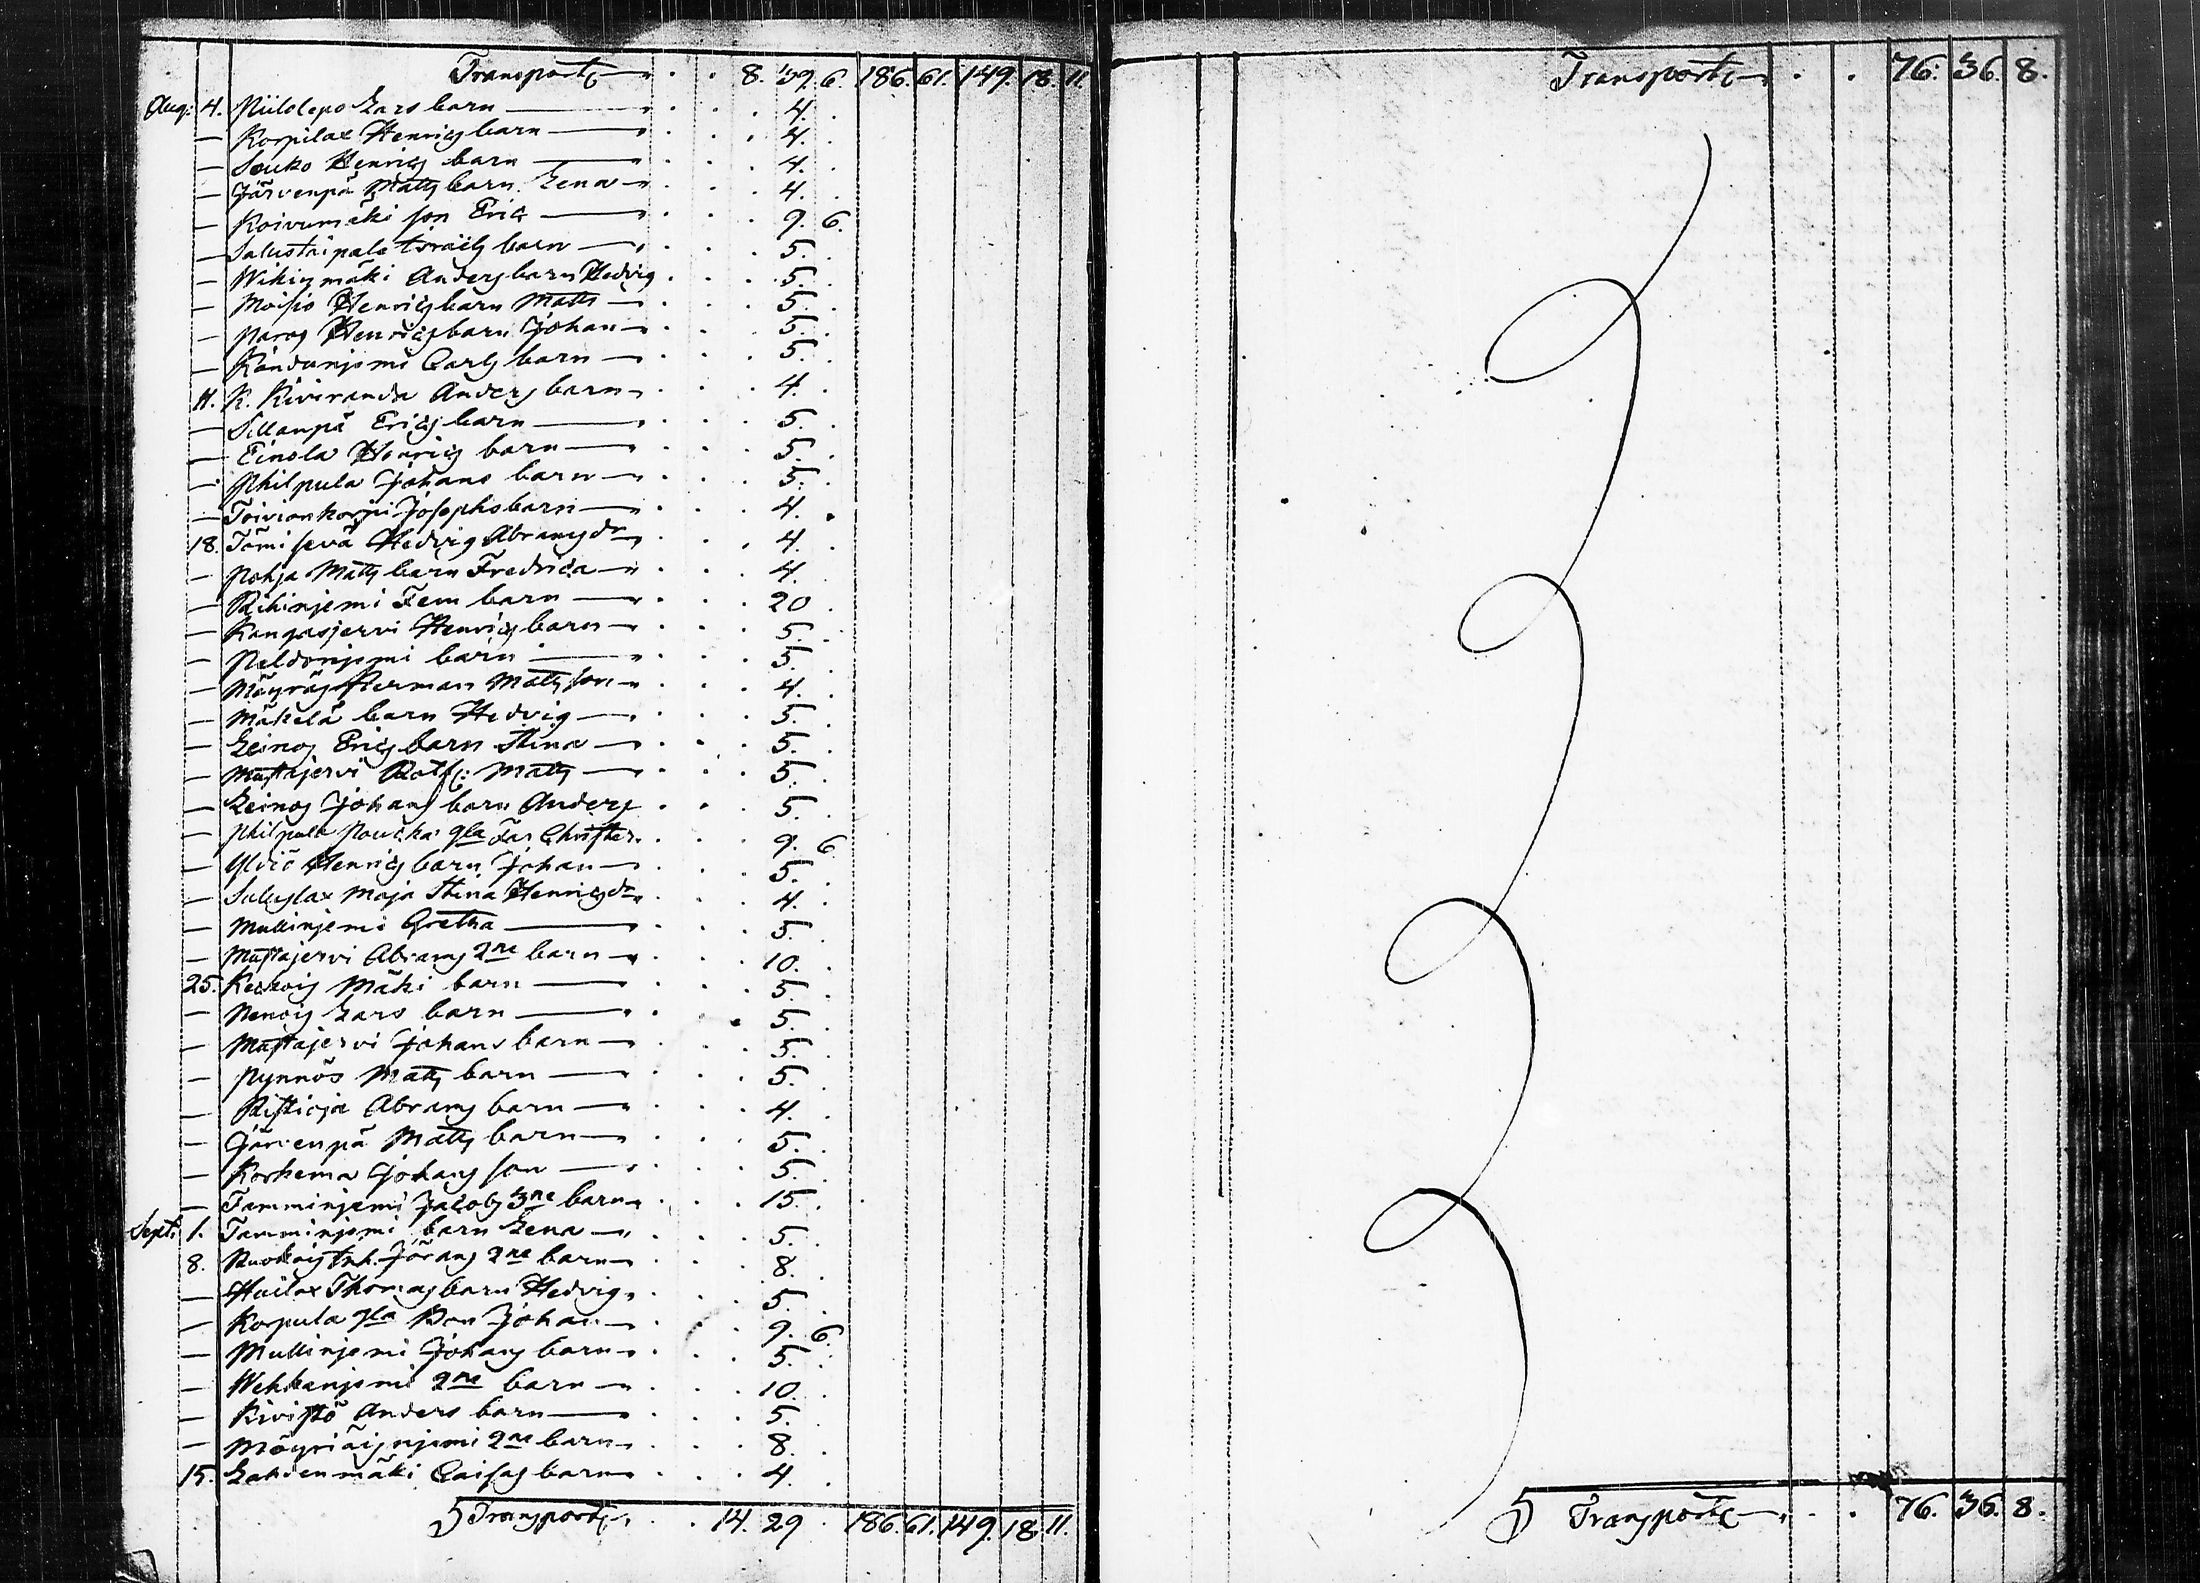 Transport . . 8. 39. 6. 186. 61. 149. 18. 11.
Aug: 4. Niilolepo Lars barn . . . 4. .
— Korpilax Henrics barn . . . 4. .
— Souko Henrics barn . . . 4. .
— Järvenpä Matts barn Lena . . . 4. .
— Koivumäki son Eric . . . 9. 6.
— Salustaipale Israels barn . . . 5. .
— Wikinmäki Anders barn Hedvig . . . 5. .
— Moisio Henrics barn Matts . . . 5. .
— Parog Henrics barn Johan . . . 5. .
— Kändänjemi Carls barn . . . 5. .
11. K. Kiviranda Anders barn . . . 4. .
— Sillanpä Erics barn . . . 5. .
— Einola Henrics barn . . . 5. .
— Philpula Johans barn . . . 5. .
— Toivionkorpi Josephs barn . . . 4. .
18. Tömisevä Hedvig Abramsdr . . . 4. .
— Pohja Matts barn Fredrica . . . 4. .
— Rihinjemi Fem barn . . . 20 .
— Kangasjervi Henrics barn . . . 5. .
— Peldonjemi barn . . . 5. .
— Möyräs Herman Matts son . . . 4. .
— Mäkelä barn Hedvig . . . 5. .
— Leinos Erics barn Stina . . . 5. .
— Mustajervi Rotf: Matts . . . 5. .
— Leinos Johans barn Anders . . . 5. .
— Philpula Poucka gla Far Christer . . . 9. 6
— Ylviö Henrics barn Johan . . . 5. .
— Saluslax Maja Stina Henricsdr . . . 4. .
— Mullinjemi Gretha . . . 5. .
— Mustajervi Abrams 2ne barn . . . 10. .
25. Keskois Mäki barn . . . 5. .
— Nenois Lars barn . . . 5. .
— Mustajervi Johans barn . . . 5. .
— Pynnös Matts barn . . . 5. .
— Ristioja Abrams barn . . . 4. .
— Järvenpä Matts barn . . . 5. .
— Korhema Johans son . . . 5. .
— Tamminjemi Jacobs 3ne barn . . . 15. .
Sept: 1. Tamminjemi barn Lena . . . 5. .
8. Ruokois Inh. Jörans 2ne barn . . . 8. .
— Huilax Thomas barn Hedvig . . . 5. .
— Korpula gla Bon Johan . . . 9. 6.
— Mullinjemi Johans barn . . . 5. .
— Wehkanjemi 2ne barn . . . 10. .
— Kivistö Anders barn . . . 5. .
— Möyriäisnjemi 2ne barn . . . 8. .
15. Lahdenmäki Caisas barn . . . 4. .
Transport . . 14. 29 . 186. 61. 149. 18. 11.
Transport . . 76. 36. 8.
Transport . . 76. 36. 8.